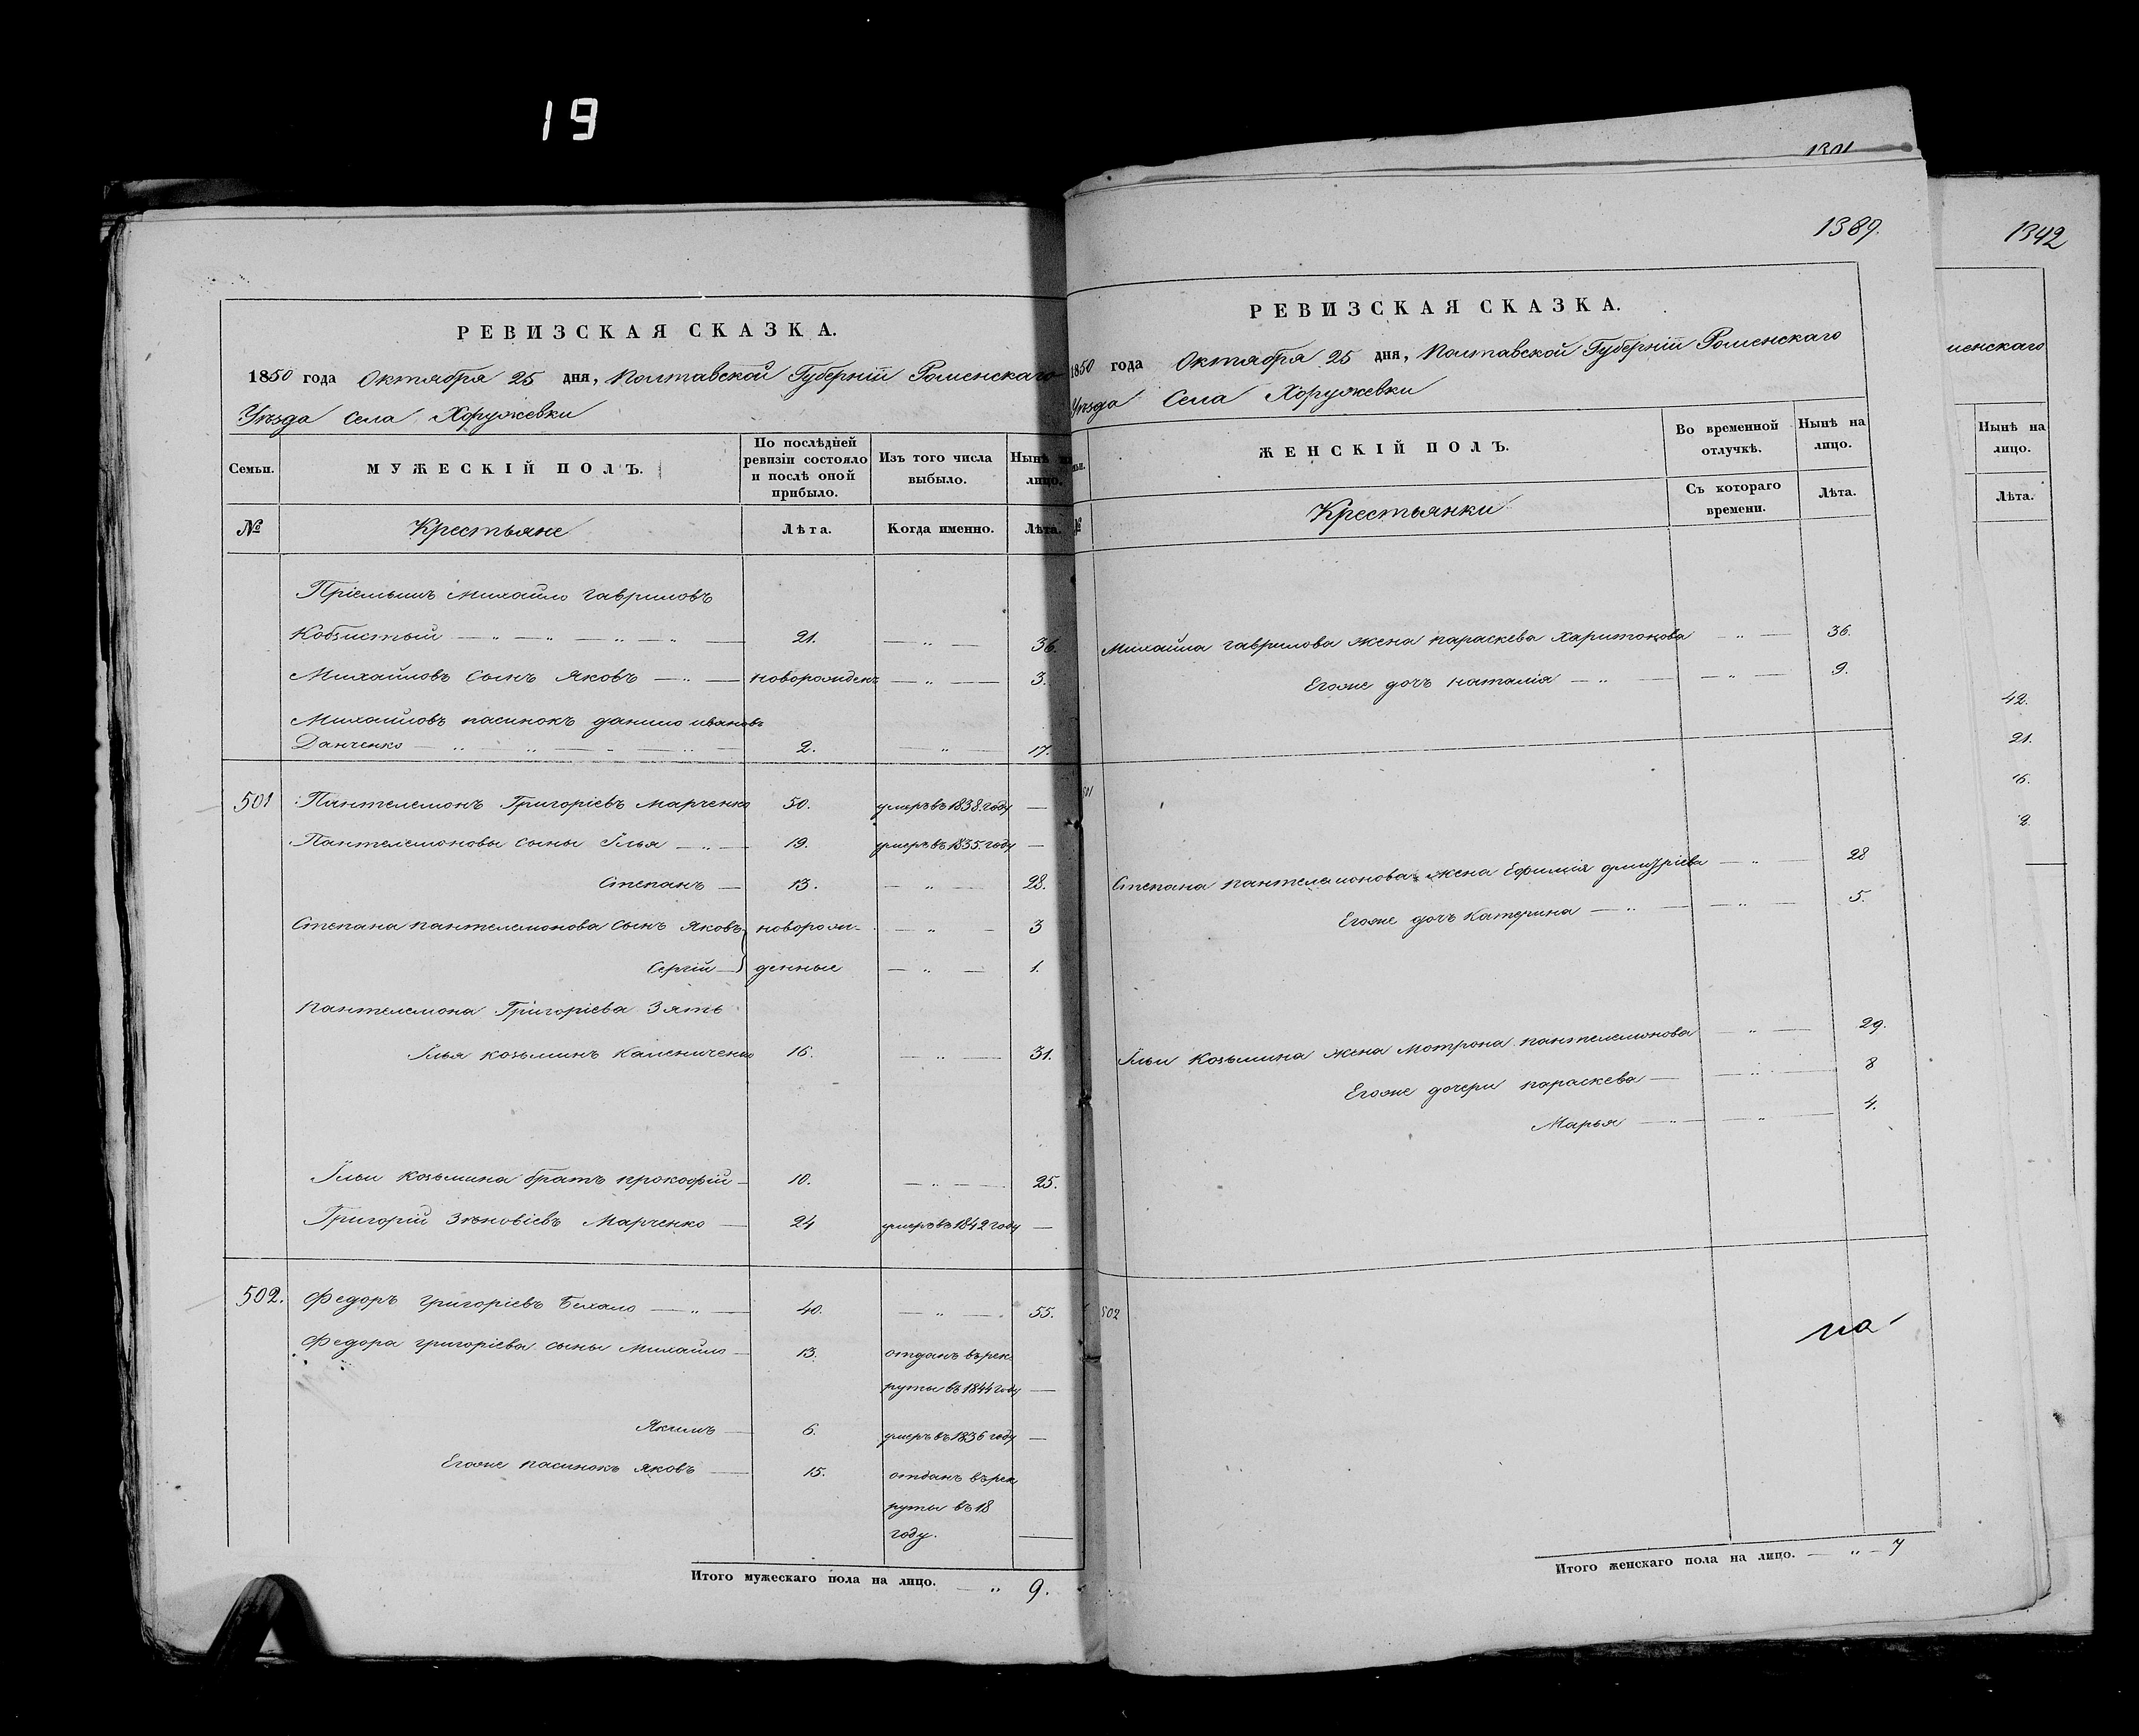 19
1301
1389.
1342
РЕВИЗСКАЯ СКАЗКА.
1850 года Октября 25 дня, Полтавской Губерніи Роменскаго
Уѣзда Села Хоружевки
Семьи.
МУЖЕСКІЙ ПОЛЪ.
По послѣдней ревизіи состояло и послѣ оной прибыло.
Изъ того числа выбыло.
Нынѣ на лицо.
№ Крестьяне Лѣта. Когда именно. Лѣта.
Пріемышъ Михайло Гавриловъ
Кобзистый — " — " — " — " — 21. — " — 36.
Михайловъ сынъ Яковъ — " — новорожденъ — " — 3.
Михайловъ пасинокъ Данило Ивановъ
Данченко — " — " — " — " — 2. — " — 17.
501 Пантелемонъ Григоріевъ Марченко 50. умеръ въ 1838. году —
Пантелемоновы сыны Илья — " — 19. умеръ въ 1835. году —
Степанъ — 13. — " — 28.
Степана Пантелемонова сынъ Яковъ новорож- — " — 3
Сергій — денные — " — 1.
Пантелемона Григоріева Зять
Илья Козьминъ Камениченко 16. — " — 31.
Ильи Козьмина братъ Прокофій — 10. — " — 25.
Григорій Зѣновіевъ Марченко — 24 умеръ въ 1842 году —
502. Федоръ Григоріевъ Бехало — " — 40. — " — 55.
Федора Григоріева сыны Михайло — 13. отданъ въ рек-
руты въ 1844 году —
Якимъ — 6. умеръ въ 1836 году —
Егоже пасинокъ Яковъ — 15. отданъ въ рек
руты въ 18
году. —
Итого мужескаго пола на лицо. — " 9.
РЕВИЗСКАЯ СКАЗКА.
1850 года Октября 25 дня, Полтавской Губерніи Роменскаго
Уѣзда Села Хоружевки
ЖЕНСКІЙ ПОЛЪ.
Во временной отлучкѣ.
Нынѣ на лицо.
№ Крестьянки
Съ котораго времени.
Лѣта.
Михайла Гаврилова жена Параскева Харитонова — " — 36.
Егоже дочь Наталія — " — — " — 9.
501
Степана Пантелемонова жена Ефимія Дмитріева — " — 28
Егоже дочь Катерина — " — — " — 5.
Ильи Козьмина жена Мотрона Пантелемонова — " — 29.
Егоже дочери Параскева — — " — 8
Марья — " — — " — 4.
502
Итого женскаго пола на лицо. — " — 7
менскаго
Нынѣ на
лицо.
Лѣта.
42.
21.
16.
2.